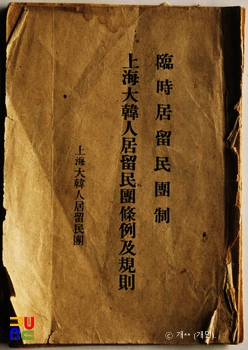 臨時居留民團制
上海大韓人居留民團條例及規則
上海大韓人居留民團
© 개** (개인)